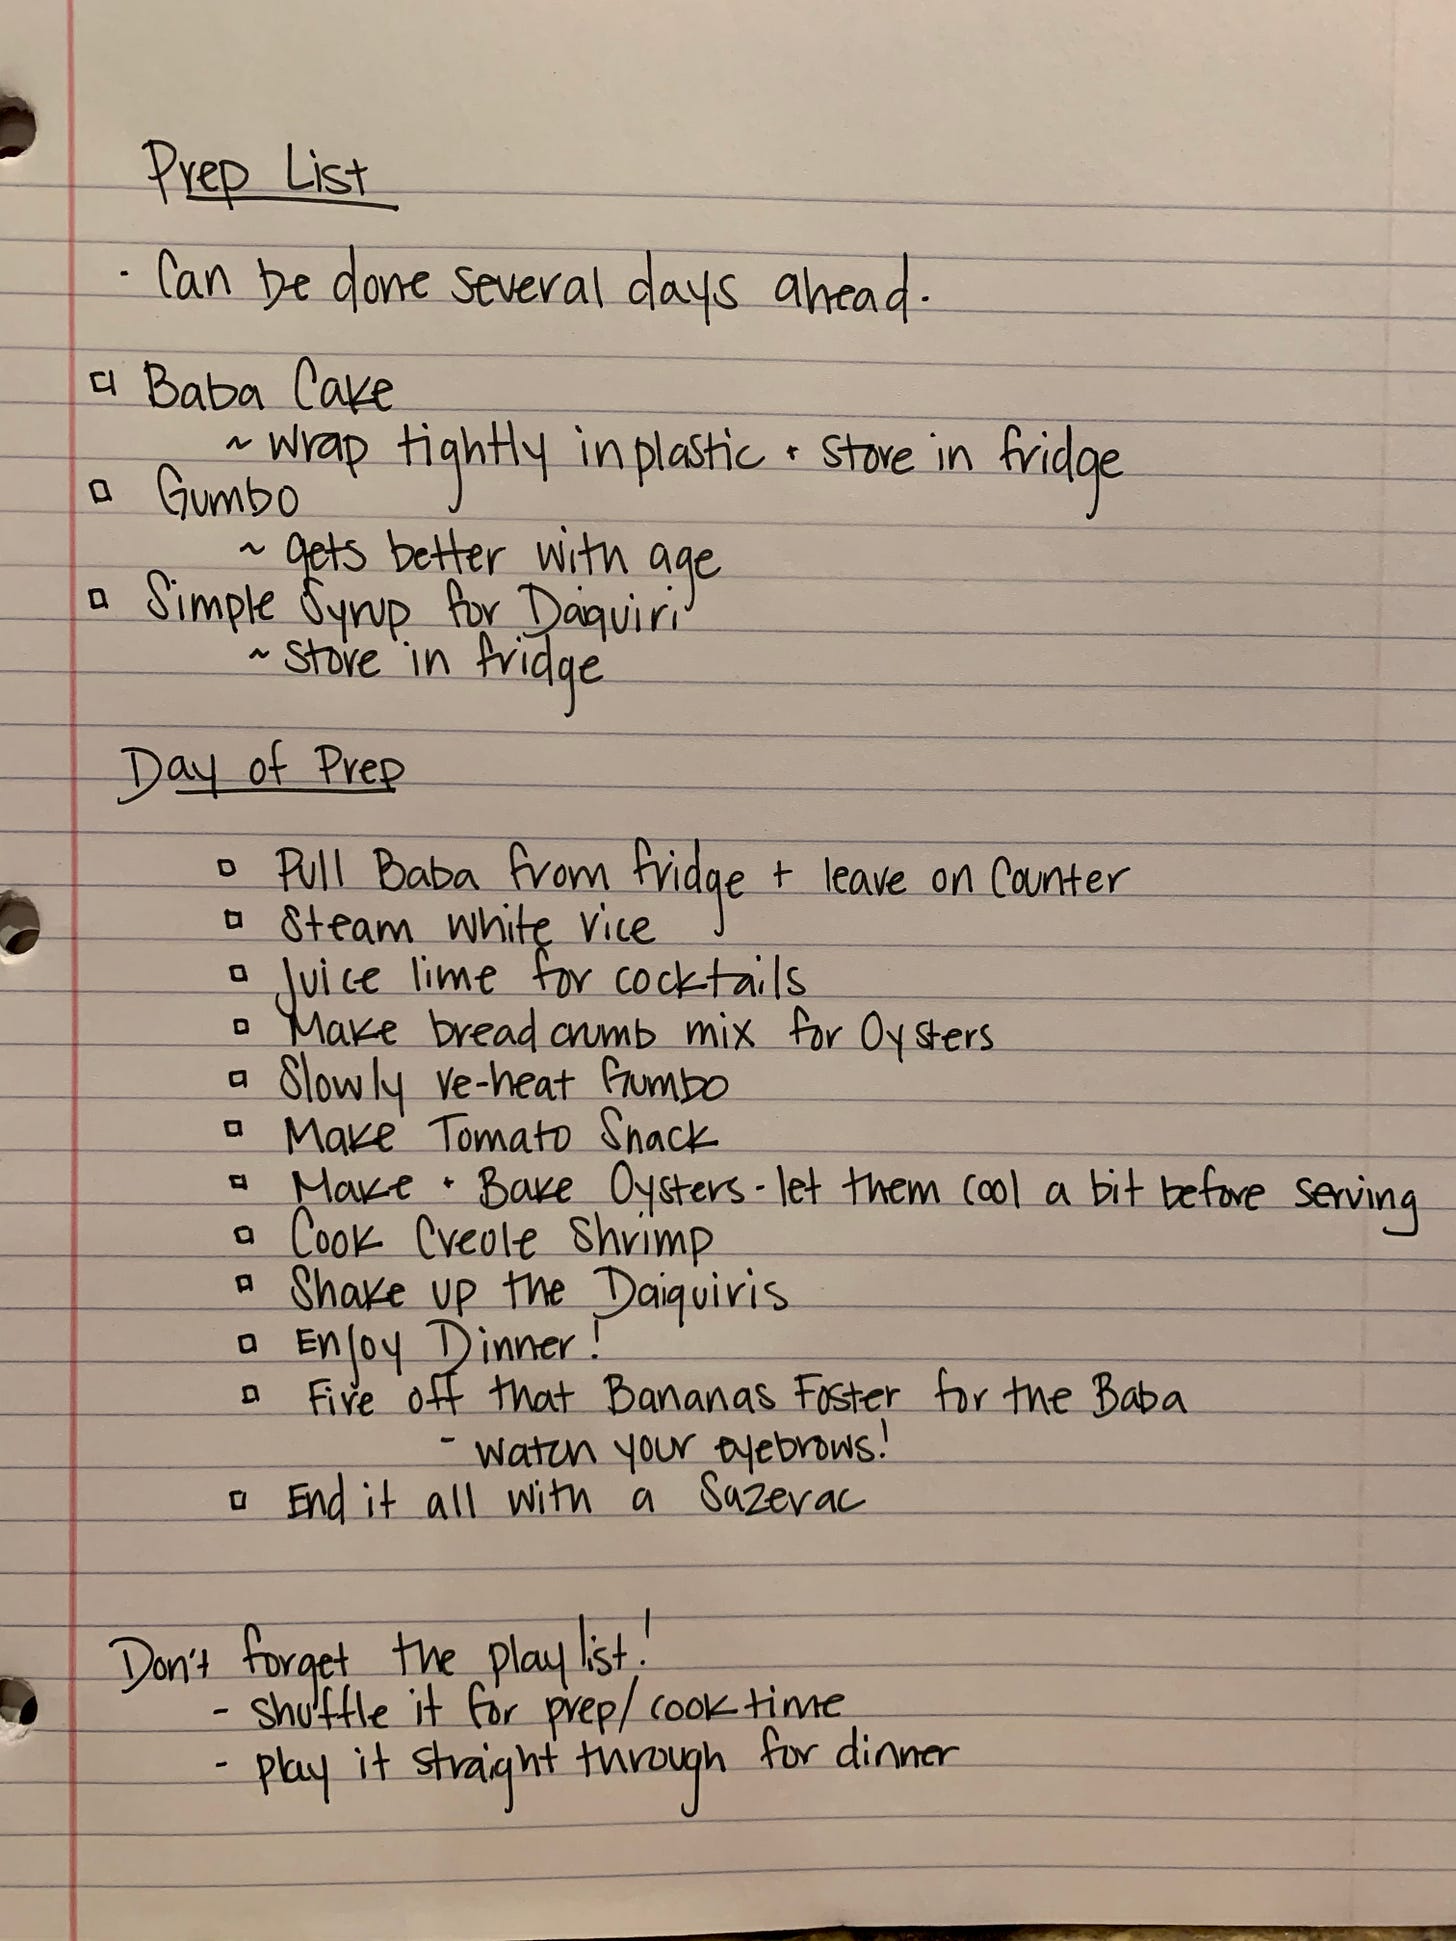 Prep List
- Can be done several days ahead.
Baba Cake
~ wrap tightly in plastic + store in fridge
Gumbo
~ gets better with age
Simple Syrup for Daiquiri
~ store in fridge
Day of Prep
Pull Baba from fridge + leave on counter
Steam white rice
Juice lime for cocktails
Make bread crumb mix for Oysters
Slowly re-heat Gumbo
Make Tomato Snack
Make + Bake Oysters - let them cool a bit before serving
Cook Creole Shrimp
Shake up the Daiquiris
Enjoy Dinner!
Fire off that Bananas Foster for the Baba
- watch your eyebrows!
End it all with a Sazerac
Don't forget the playlist!
- shuffle it for prep/cook time
- play it straight through for dinner